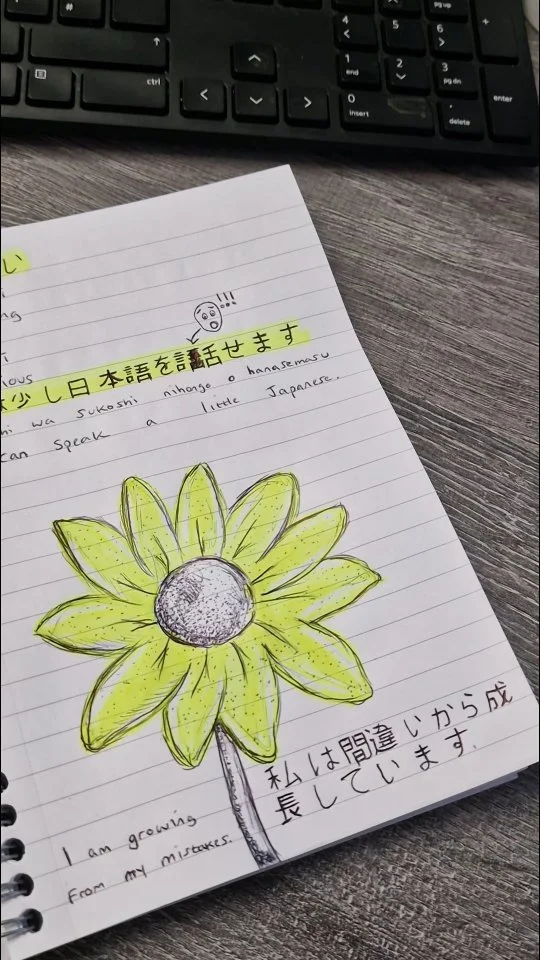 #
ctrl
4
5
6
1
end
2
3
pg dn
pg up
+
0
insert
.
delete
enter
い
!!!
少し日本語を話せます
wa sukoshi nihongo o hanasemasu
can speak a little Japanese.
私は間違いから成
長しています.
I am growing
From my mistakes.